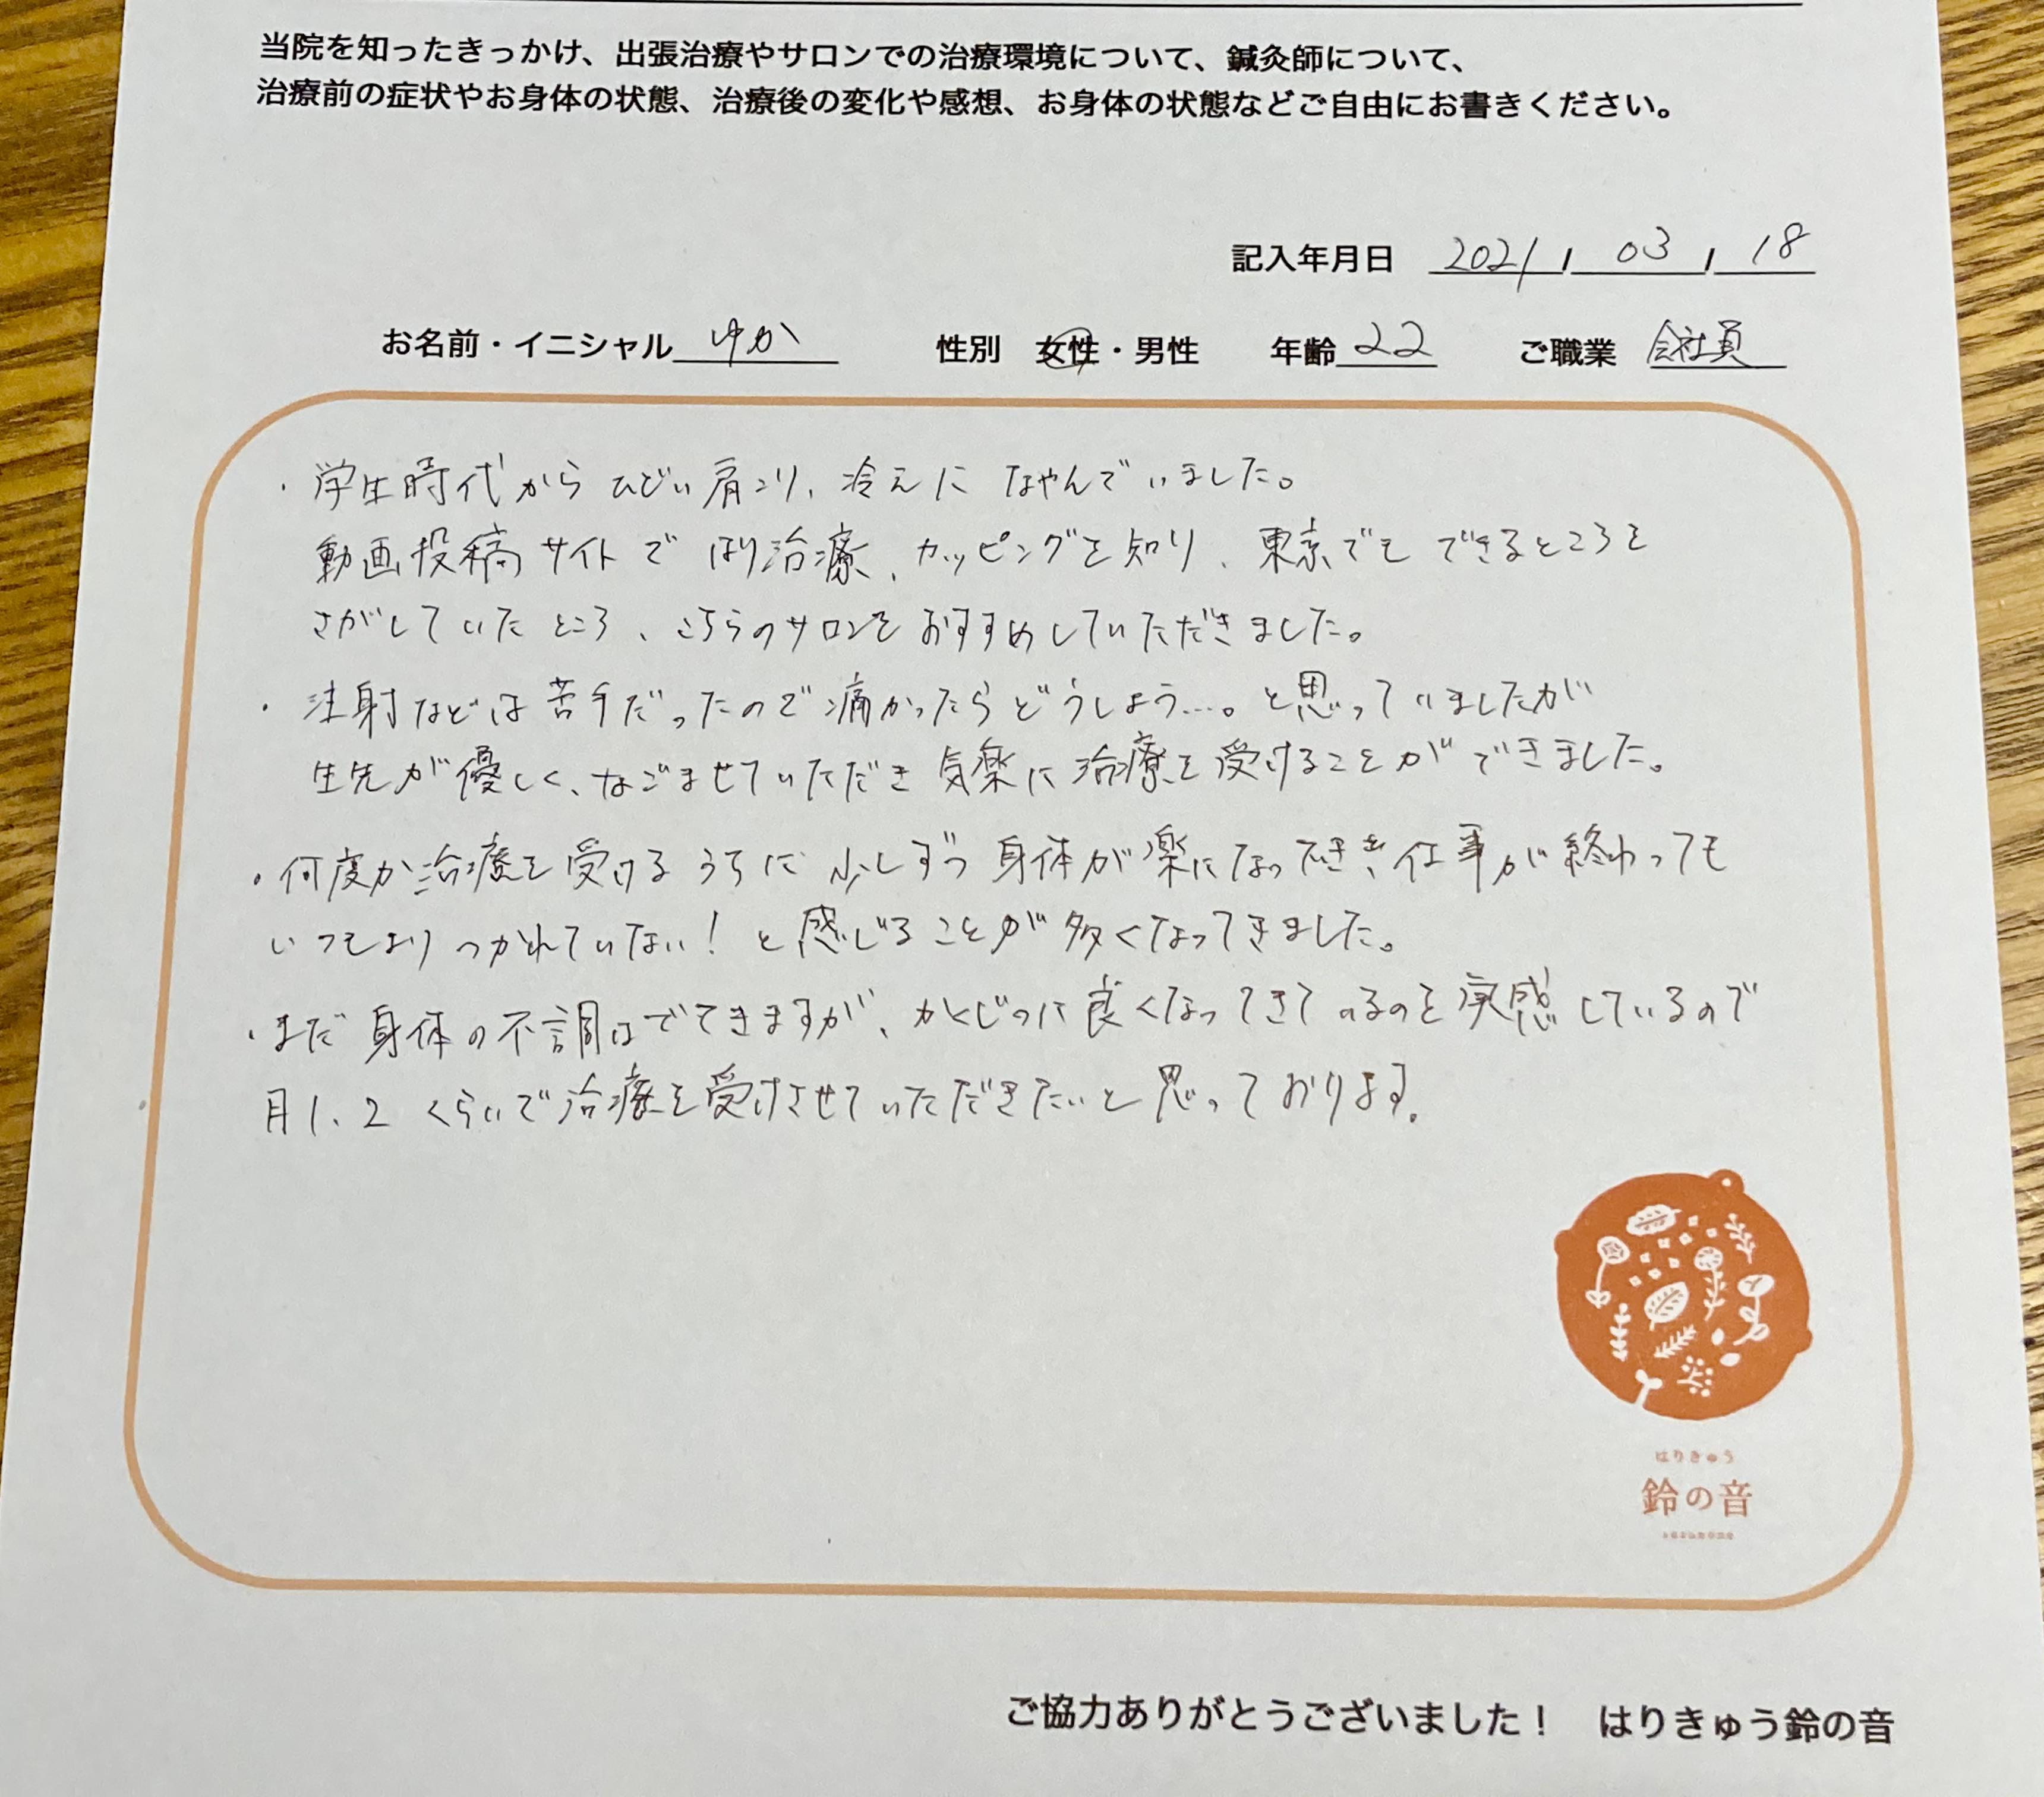 当院を知ったきっかけ、出張治療やサロンでの治療環境について、鍼灸師について、
治療前の症状やお身体の状態、治療後の変化や感想、お身体の状態などご自由にお書きください。
記入年月日 2021 / 03 / 18
お名前・イニシャル ゆか 性別 女性・男性 年齢 22 ご職業 会社員
・学生時代からひどい肩こり、冷えになやんでいました。
動画投稿サイトではり治療、カッピングを知り、東京でもできるところを
さがしていたところ、こちらのサロンをおすすめしていただきました。
・注射などは苦手だったので痛かったらどうしよう…。と思っていましたが
生先が優しく、なごませていただき気楽に治療を受けることができました。
・何度か治療を受けるうちに少しずつ身体が楽になってきき、仕事が終わっても
いつもよりつかれていない！と感じることが多くなってきました。
・まだ身体の不調はでてきますが、かくじつに良くなってきているのを実感しているので
月1、2くらいで治療を受けさせていただきたいと思っております。
はりきゅう
鈴の音
suzunone
ご協力ありがとうございました！ はりきゅう鈴の音